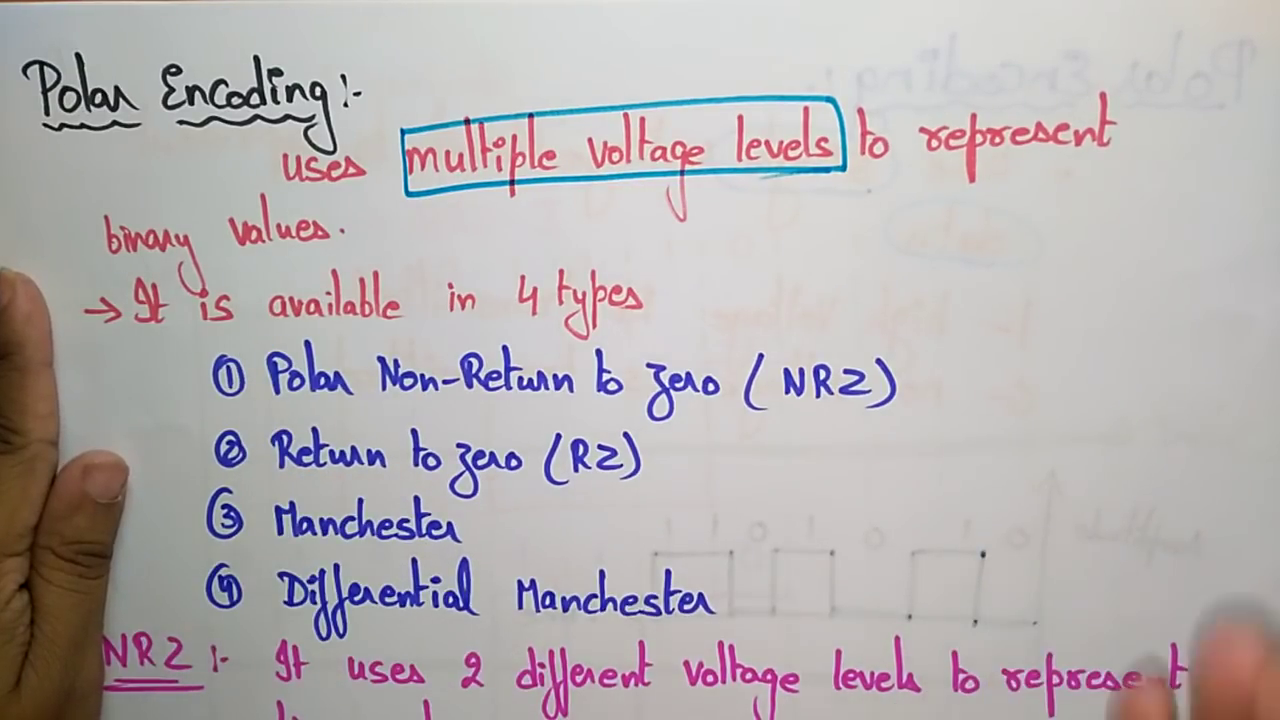 Polar Encoding :-
uses multiple voltage levels to represent
binary values.
→ It is available in 4 types
① Polar Non-Return to zero (NRZ)
② Return to zero (RZ)
③ Manchester
④ Differential Manchester
NRZ :- It uses 2 different voltage levels to represent